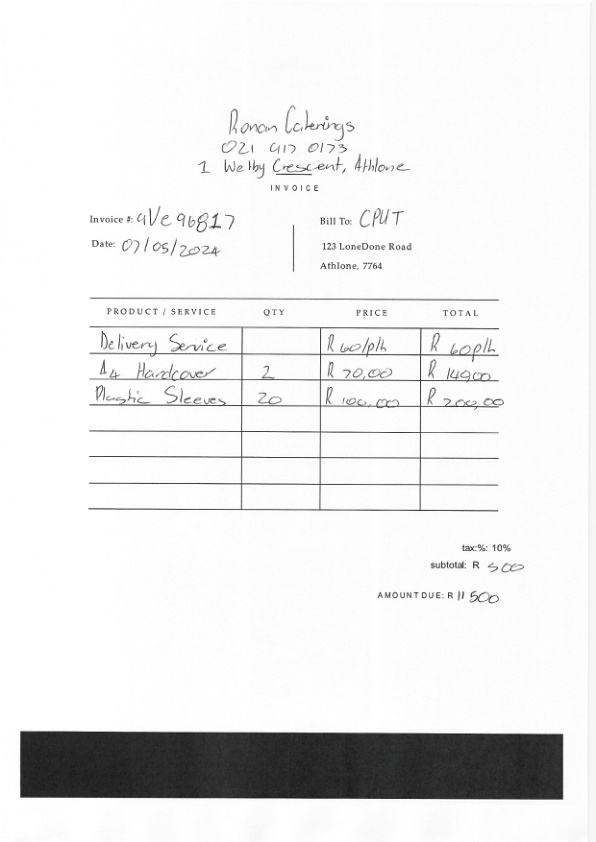 Ronan Caterings
021 917 0173
1 Welby Crescent, Athlone
INVOICE
Invoice #: aVe96817
Date: 07/05/2024
Bill To: CPUT
123 LoneDone Road
Athlone, 7764
PRODUCT / SERVICE QTY PRICE TOTAL
Delivery Service R 60/p/h R 60p/h
A4 Hardcover 2 R 70,00 R 140,00
Plastic Sleeves 20 R 100,00 R 200,00
tax:%: 10%
subtotal: R 500
AMOUNT DUE: R 11 500